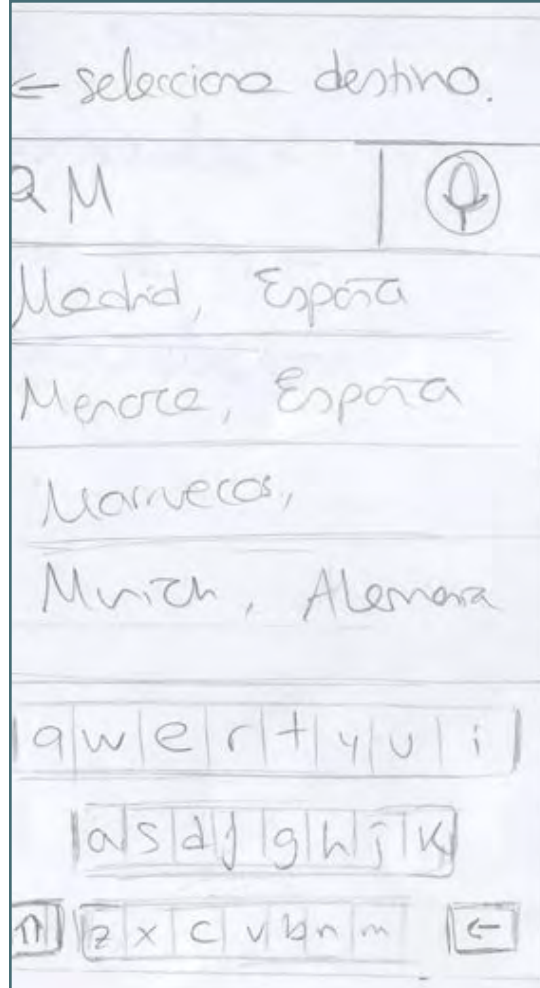 ← selecciona destino.
M
Madrid, España
Menorca, España
Marruecos,
Munich, Alemania
q w e r t y u i
a s d f g h j k
z x c v b n m